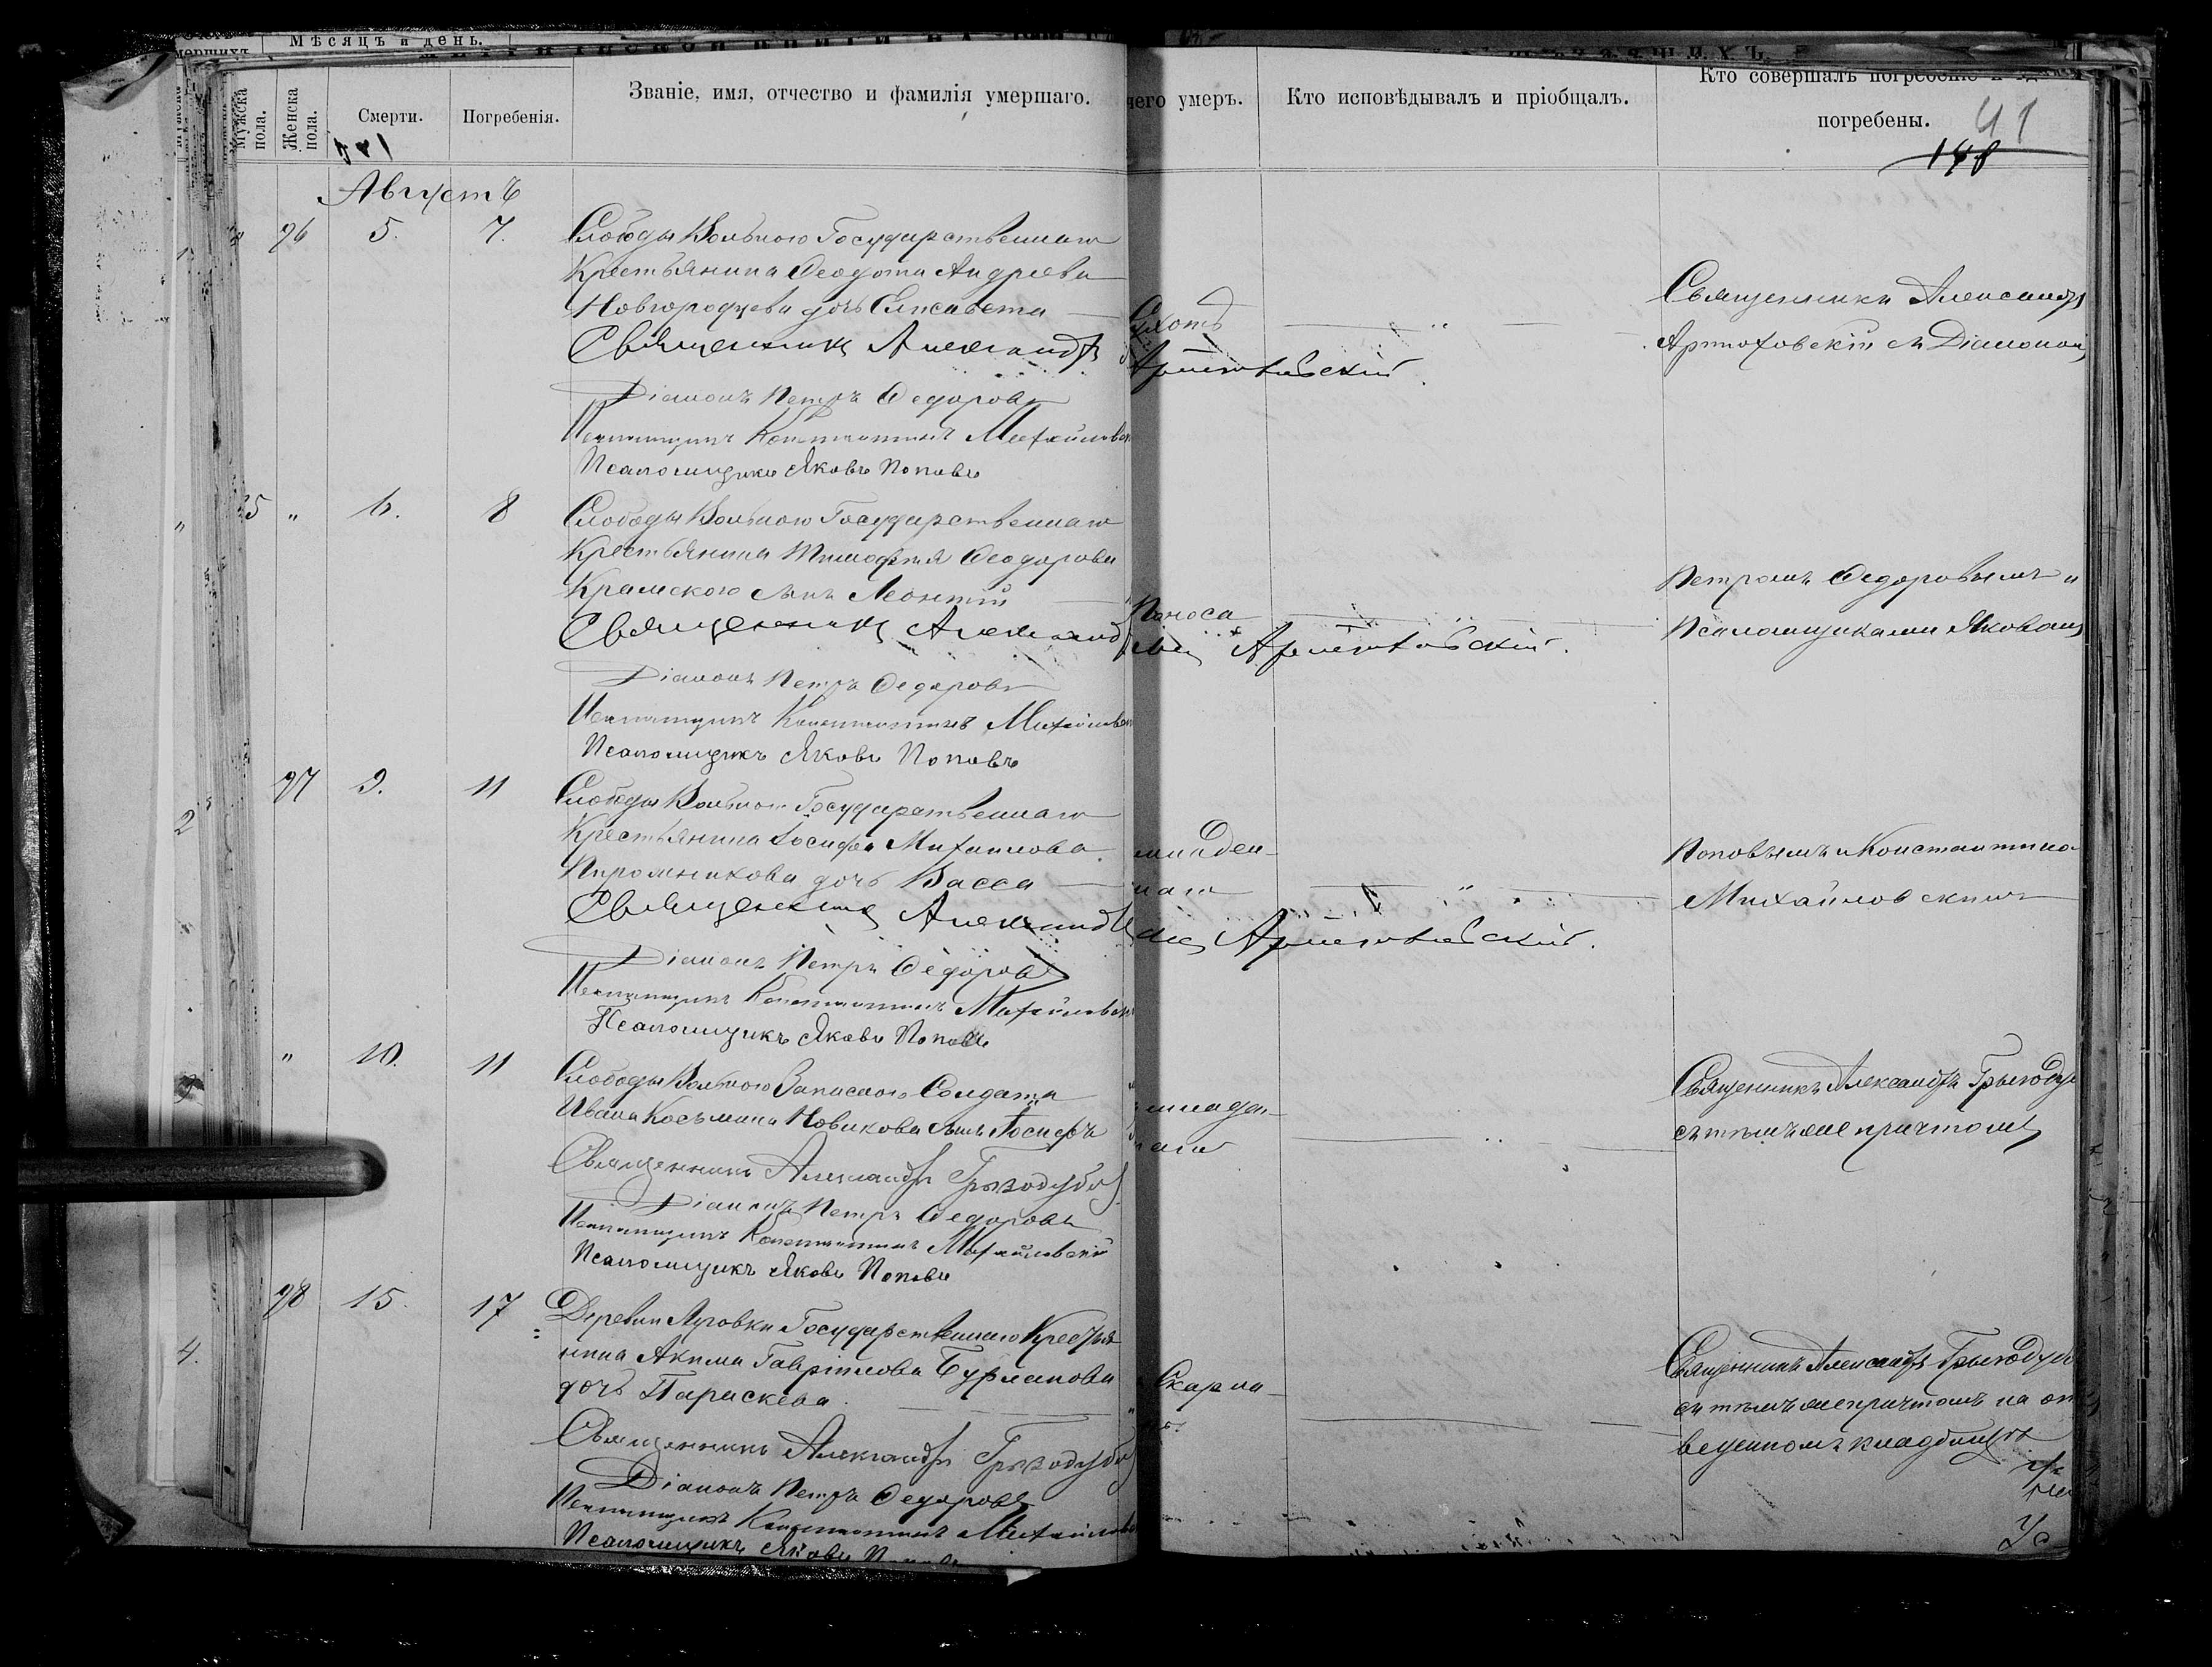 Мѣсяцъ и день.
Мужска пола.
Женска пола.
Смерти.
Погребенія.
Званіе, имя, отчество и фамилія умершаго.
чего умеръ.
Кто исповѣдывалъ и пріобщалъ.
Кто совершалъ погребеніе
погребены.
41
148
Августъ
26 5. 7.
Слободы Вольного Государственнаго
Крестьянина Ѳеодота Андреева
Новгородцева дочь Елисавета
Священникъ Александръ Артюховскій
Діаконъ Петръ Ѳедоровъ
Псаломщикъ Константинъ Михайловскій
Псаломщикъ Яковъ Поповъ
Священникъ Александръ
Артюховскій съ Діакономъ
25 " 6. 8
Слободы Вольного Государственнаго
Крестьянина Тимофея Ѳеодорова
Крамского сынъ Леонтій
Поноса
Священникъ Александръ Артюховскій.
Діаконъ Петръ Ѳедоровъ
Псаломщикъ Константинъ Михайловскій
Псаломщикъ Яковъ Поповъ
Петромъ Ѳедоровымъ и
Псаломщиками Яковомъ
27 9. 11
Слободы Вольного Государственнаго
Крестьянина Іосифа Михаилова
дочь Васса
младен-
наго
Священникъ Александръ Артюховскій.
Діаконъ Петръ Ѳедоровъ
Псаломщикъ Константинъ Михайловскій
Псаломщикъ Яковъ Поповъ
Поповымъ и Константино
Михайловскимъ
" 10. 11
Слободы Вольного Запасного Солдата
Ивана Косьмина Новикова сынъ Іосифъ
младен-
наго
Священникъ Александръ Грызодубовъ
Діаконъ Петръ Ѳедоровъ
Псаломщикъ Константинъ Михайловскій
Псаломщикъ Яковъ Поповъ
Священникъ Александръ Грызодуб
съ тѣмъ же причтомъ
28 15. 17
Деревни Яровки Государственнаго Крестья
нина Акима Гавріилова Бурлакова
дочь Параскева.
Скарла-
Священникъ Александръ Грызодубовъ
Діаконъ Петръ Ѳедоровъ
Псаломщикъ Константинъ Михайловскій
Псаломщикъ Яковъ
Священникъ Александръ Грызодуб
съ тѣмъ же причтомъ на от
веденномъ кладбищѣ